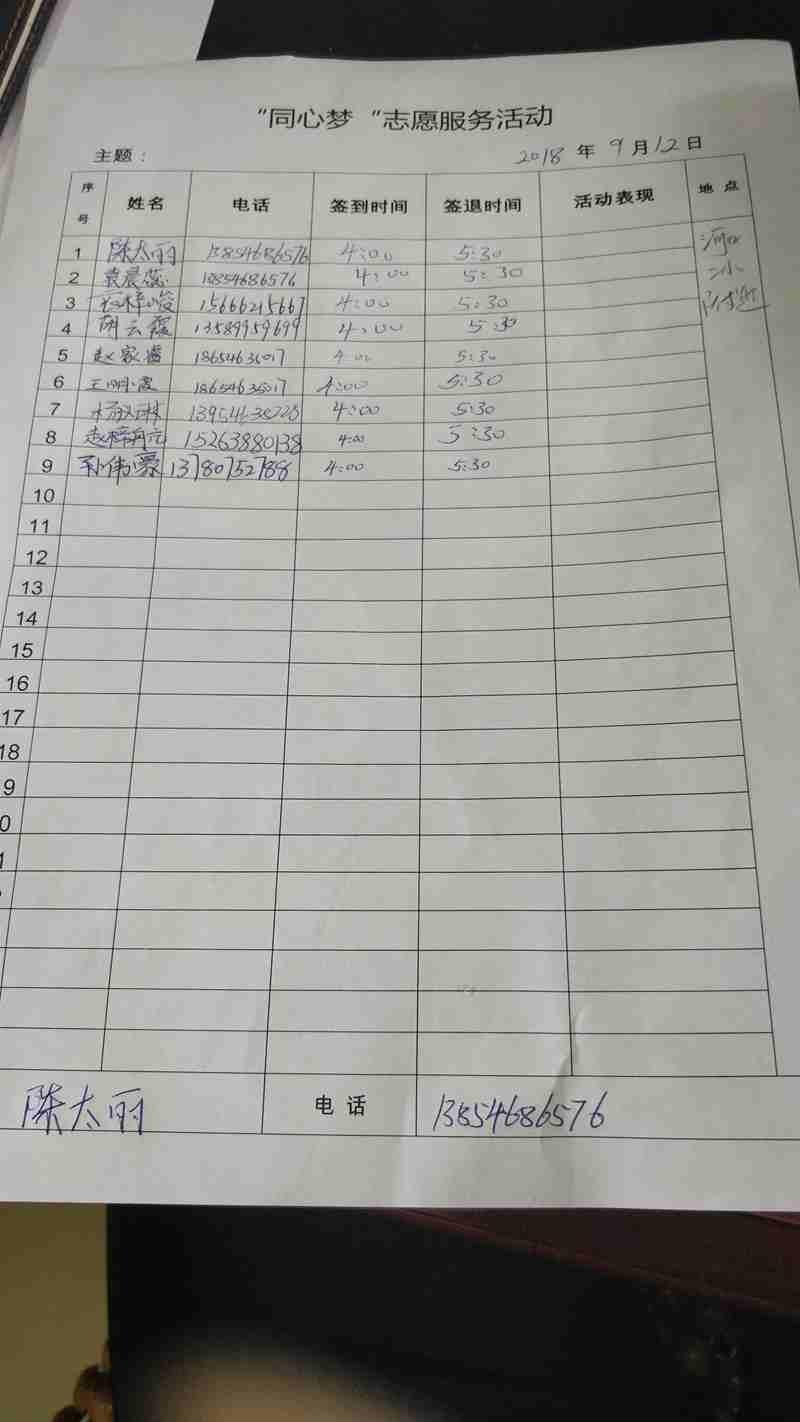 “同心梦“志愿服务活动
主题： 2018 年 9 月 12 日
序号 姓名 电话 签到时间 签退时间 活动表现 地点
1 陈太丽 13854686576 4:00 5:30 河口
2 袁晨蕊 13854686576 4:00 5:30 二小
3 15666215667 4:00 5:30 附近
4 胡云霞 13589959699 4:00 5:30
5 赵家睿 18654635017 4:00 5:30
6 王明霞 18654635017 4:00 5:30
7 4:00 5:30
8 15263880138 4:00 5:30
9 孙伟 13780752788 4:00 5:30
10
11
12
13
14
15
16
17
18
9
0
1
陈太丽 电 话 13854686576